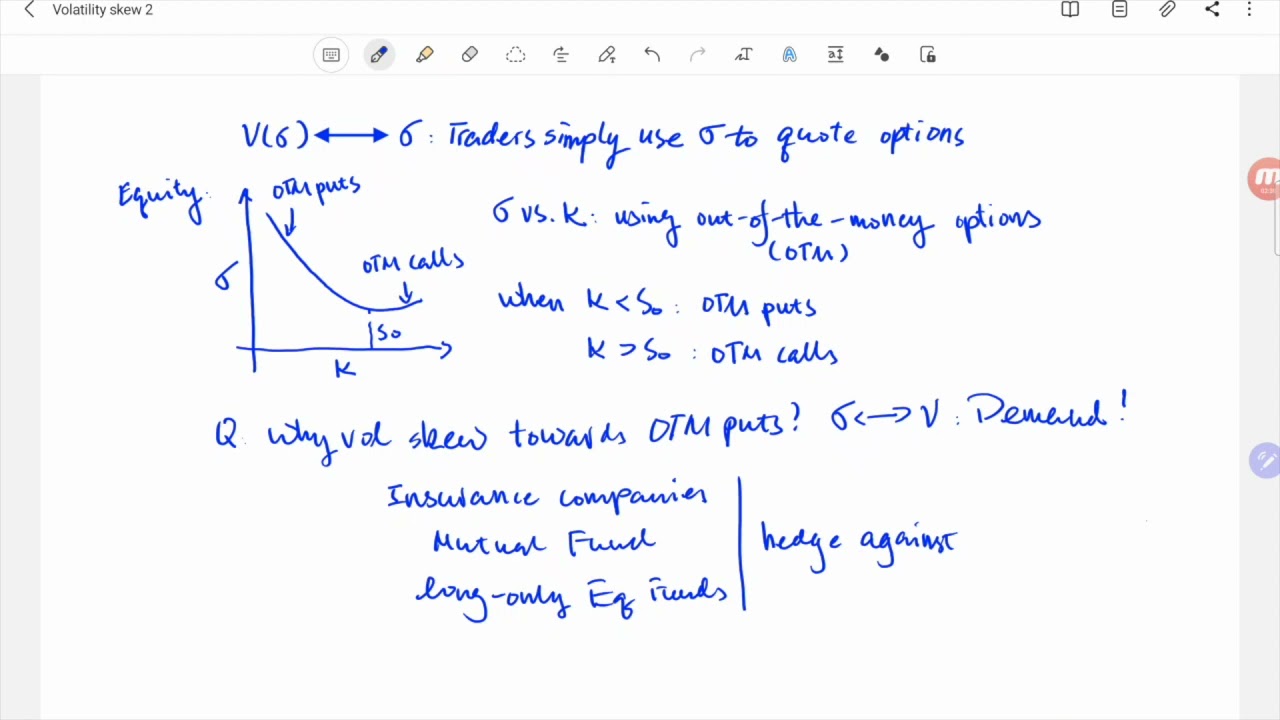 Volatility skew 2
V(σ) ⟷ σ : Traders simply use σ to quote options
Equity:
OTM puts
σ
OTM calls
S₀
K
σ vs. K : using out-of-the-money options
(OTM)
when K < S₀ : OTM puts
K > S₀ : OTM calls
Q: why vol skew towards OTM puts? σ ⟷ V : Demand!
Insurance companies
Mutual Fund
long-only Eq Funds
hedge against
02:01